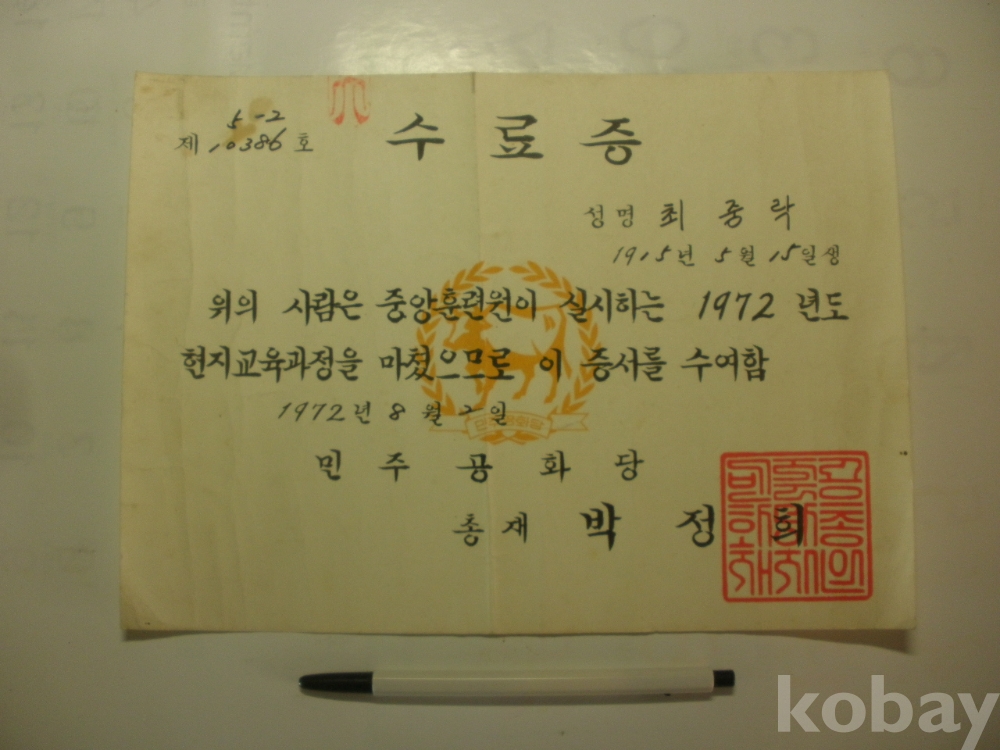 5-2
제 10386 호
수 료 증
성명 최 중 락
1915년 5월 15일생
위의 사람은 중앙훈련원이 실시하는 1972 년도
현지교육과정을 마쳤으므로 이 증서를 수여함
1972년 8월 2일
민주공화당
민 주 공 화 당
총 재 박 정 희
kobay